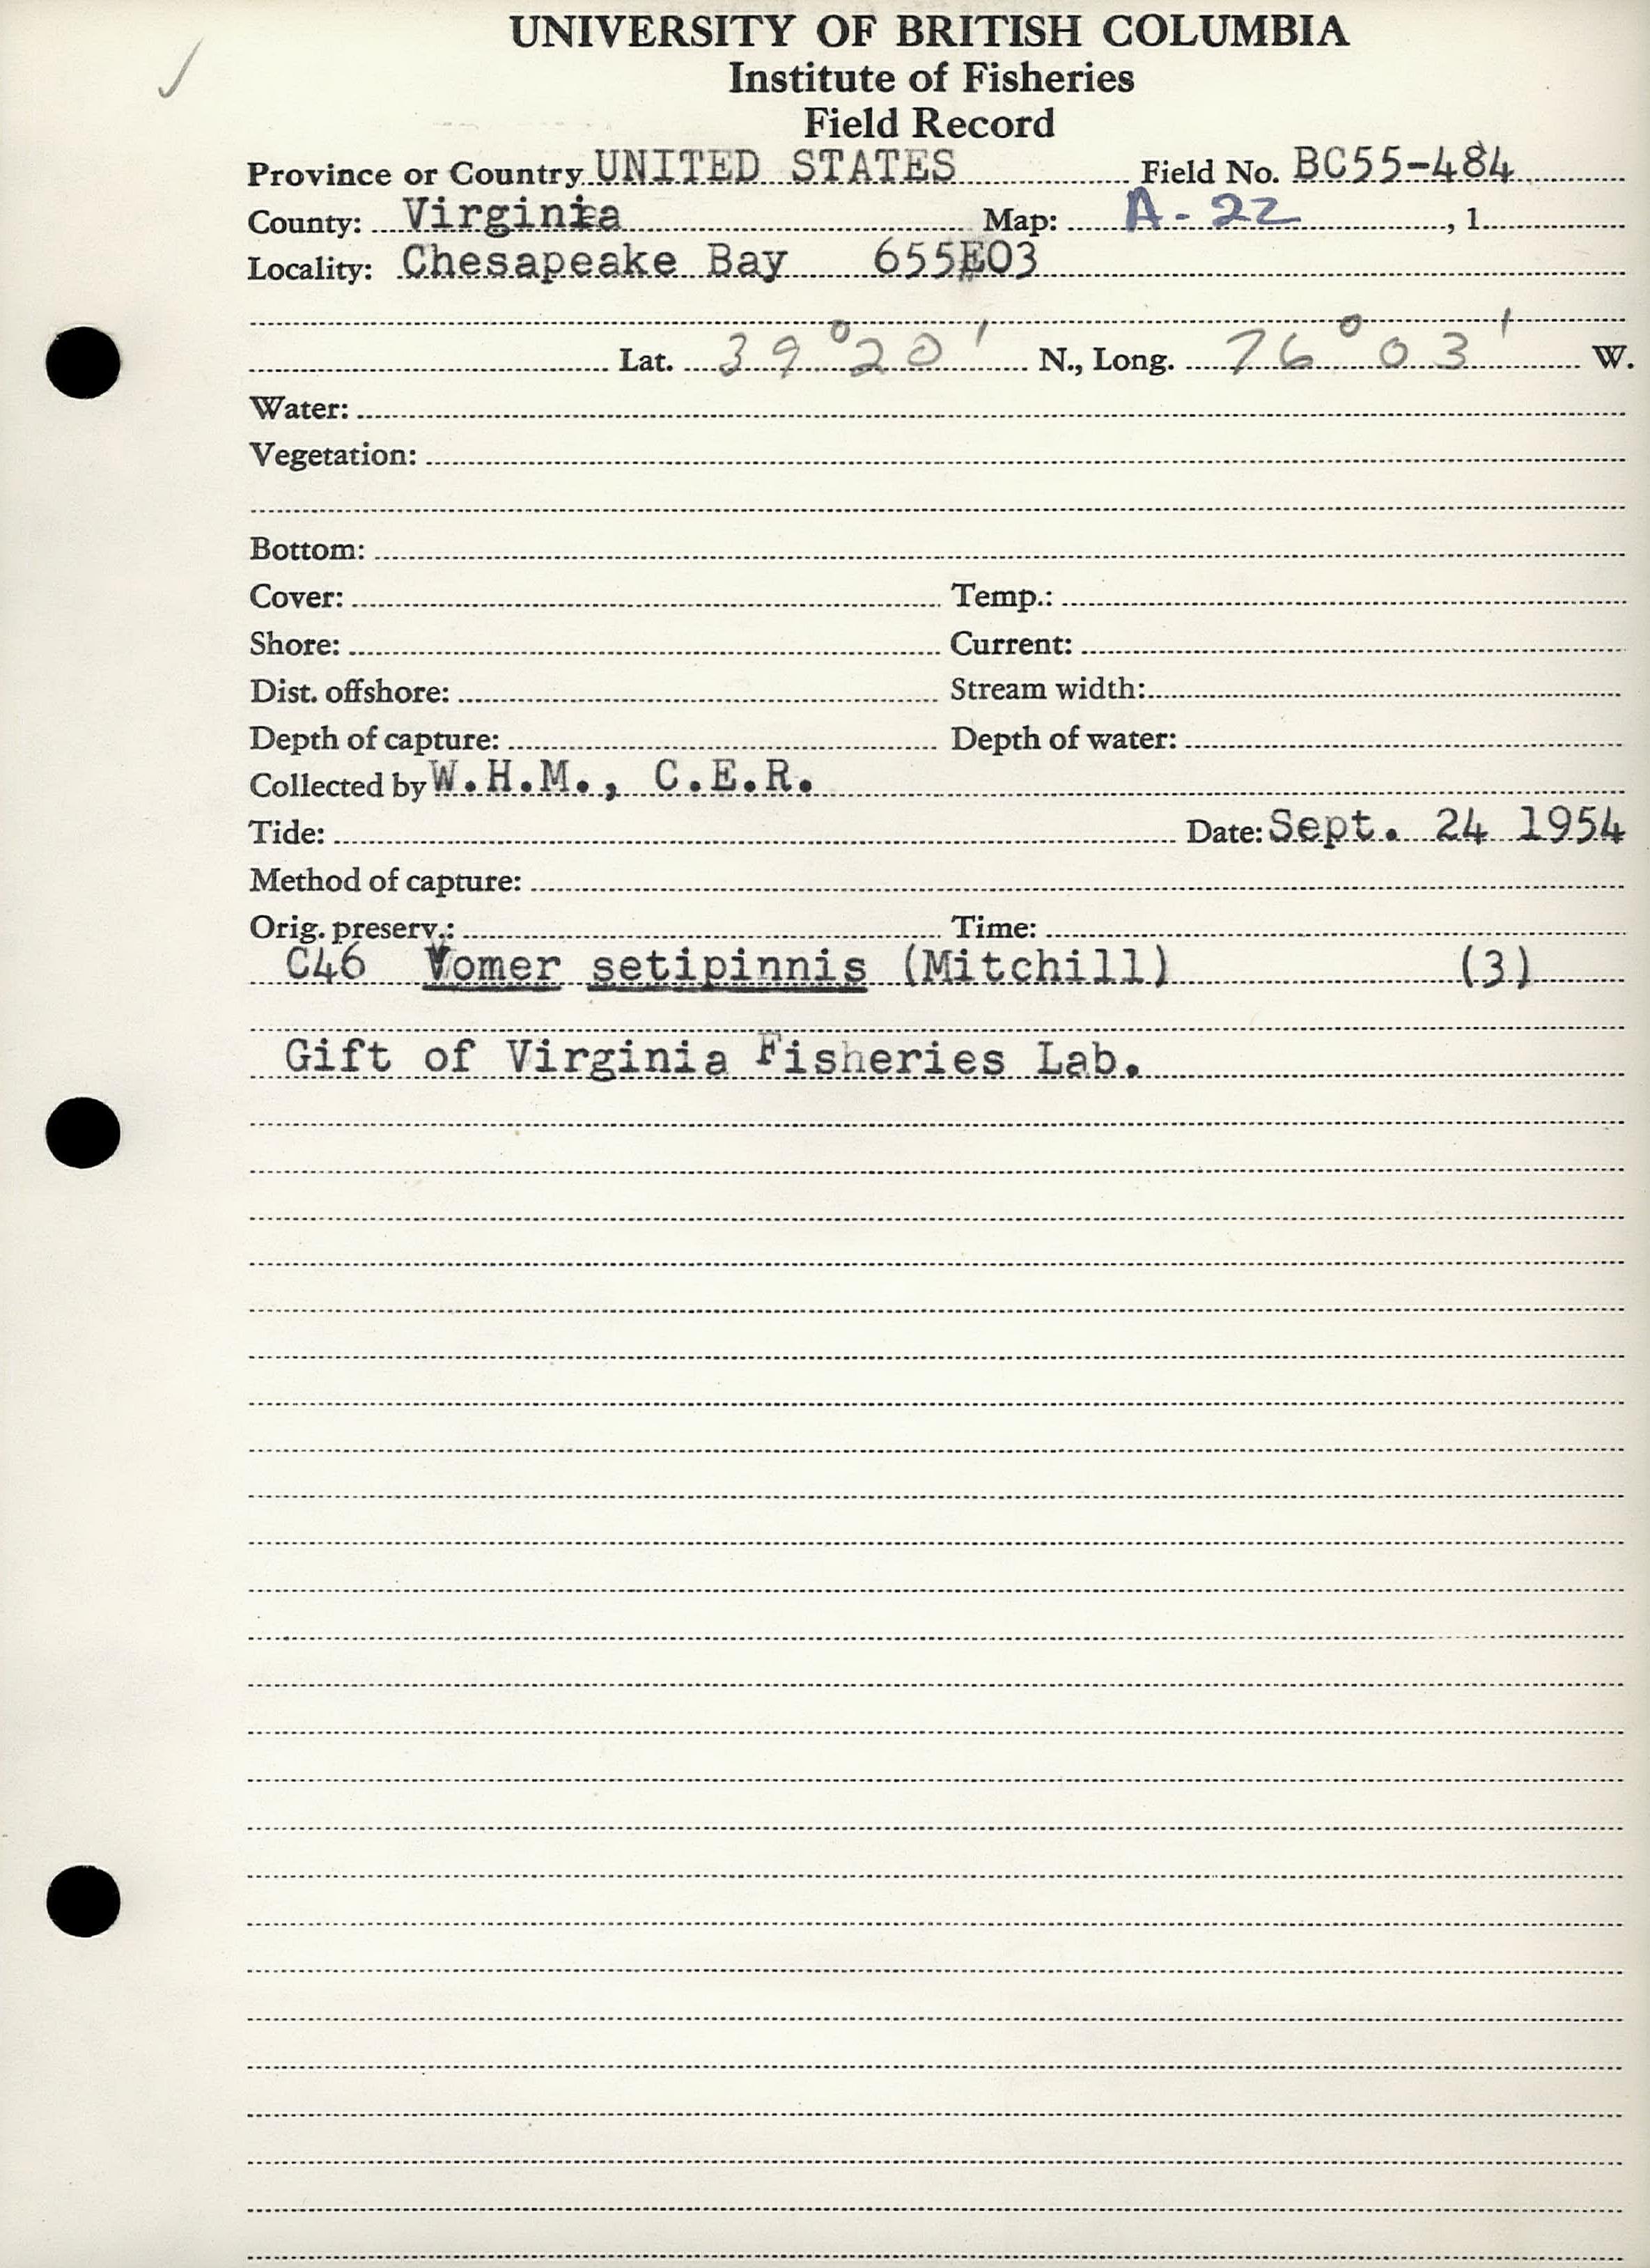 UNIVERSITY OF BRITISH COLUMBIA
Institute of Fisheries
Field Record
Province or Country UNITED STATES Field No. BC55-484
County: Virginia Map: A-22, 1
Locality: Chesapeake Bay 655E03
Lat. 39°20' N., Long. 76°03' W.
Water:
Vegetation:
Bottom:
Cover: Temp.:
Shore: Current:
Dist. offshore: Stream width:
Depth of capture: Depth of water:
Collected by W.H.M., C.E.R.
Tide: Date: Sept. 24 1954
Method of capture:
Orig. preserv.: Time:
C46 Vomer setipinnis (Mitchill) (3)
Gift of Virginia Fisheries Lab.